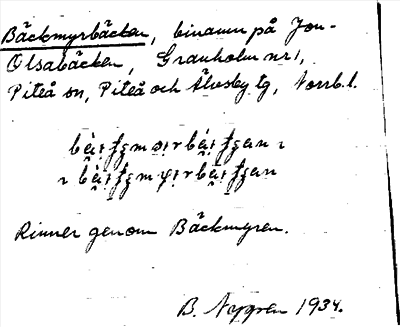 Bäckmyrbäcken, binamn på Jon-
Olsabäcken, Granholm nr 1,
Piteå sn, Piteå och Älvsby tg, Norrb.l.
Rinner genom Bäckmyren.
B. Nygren 1934.